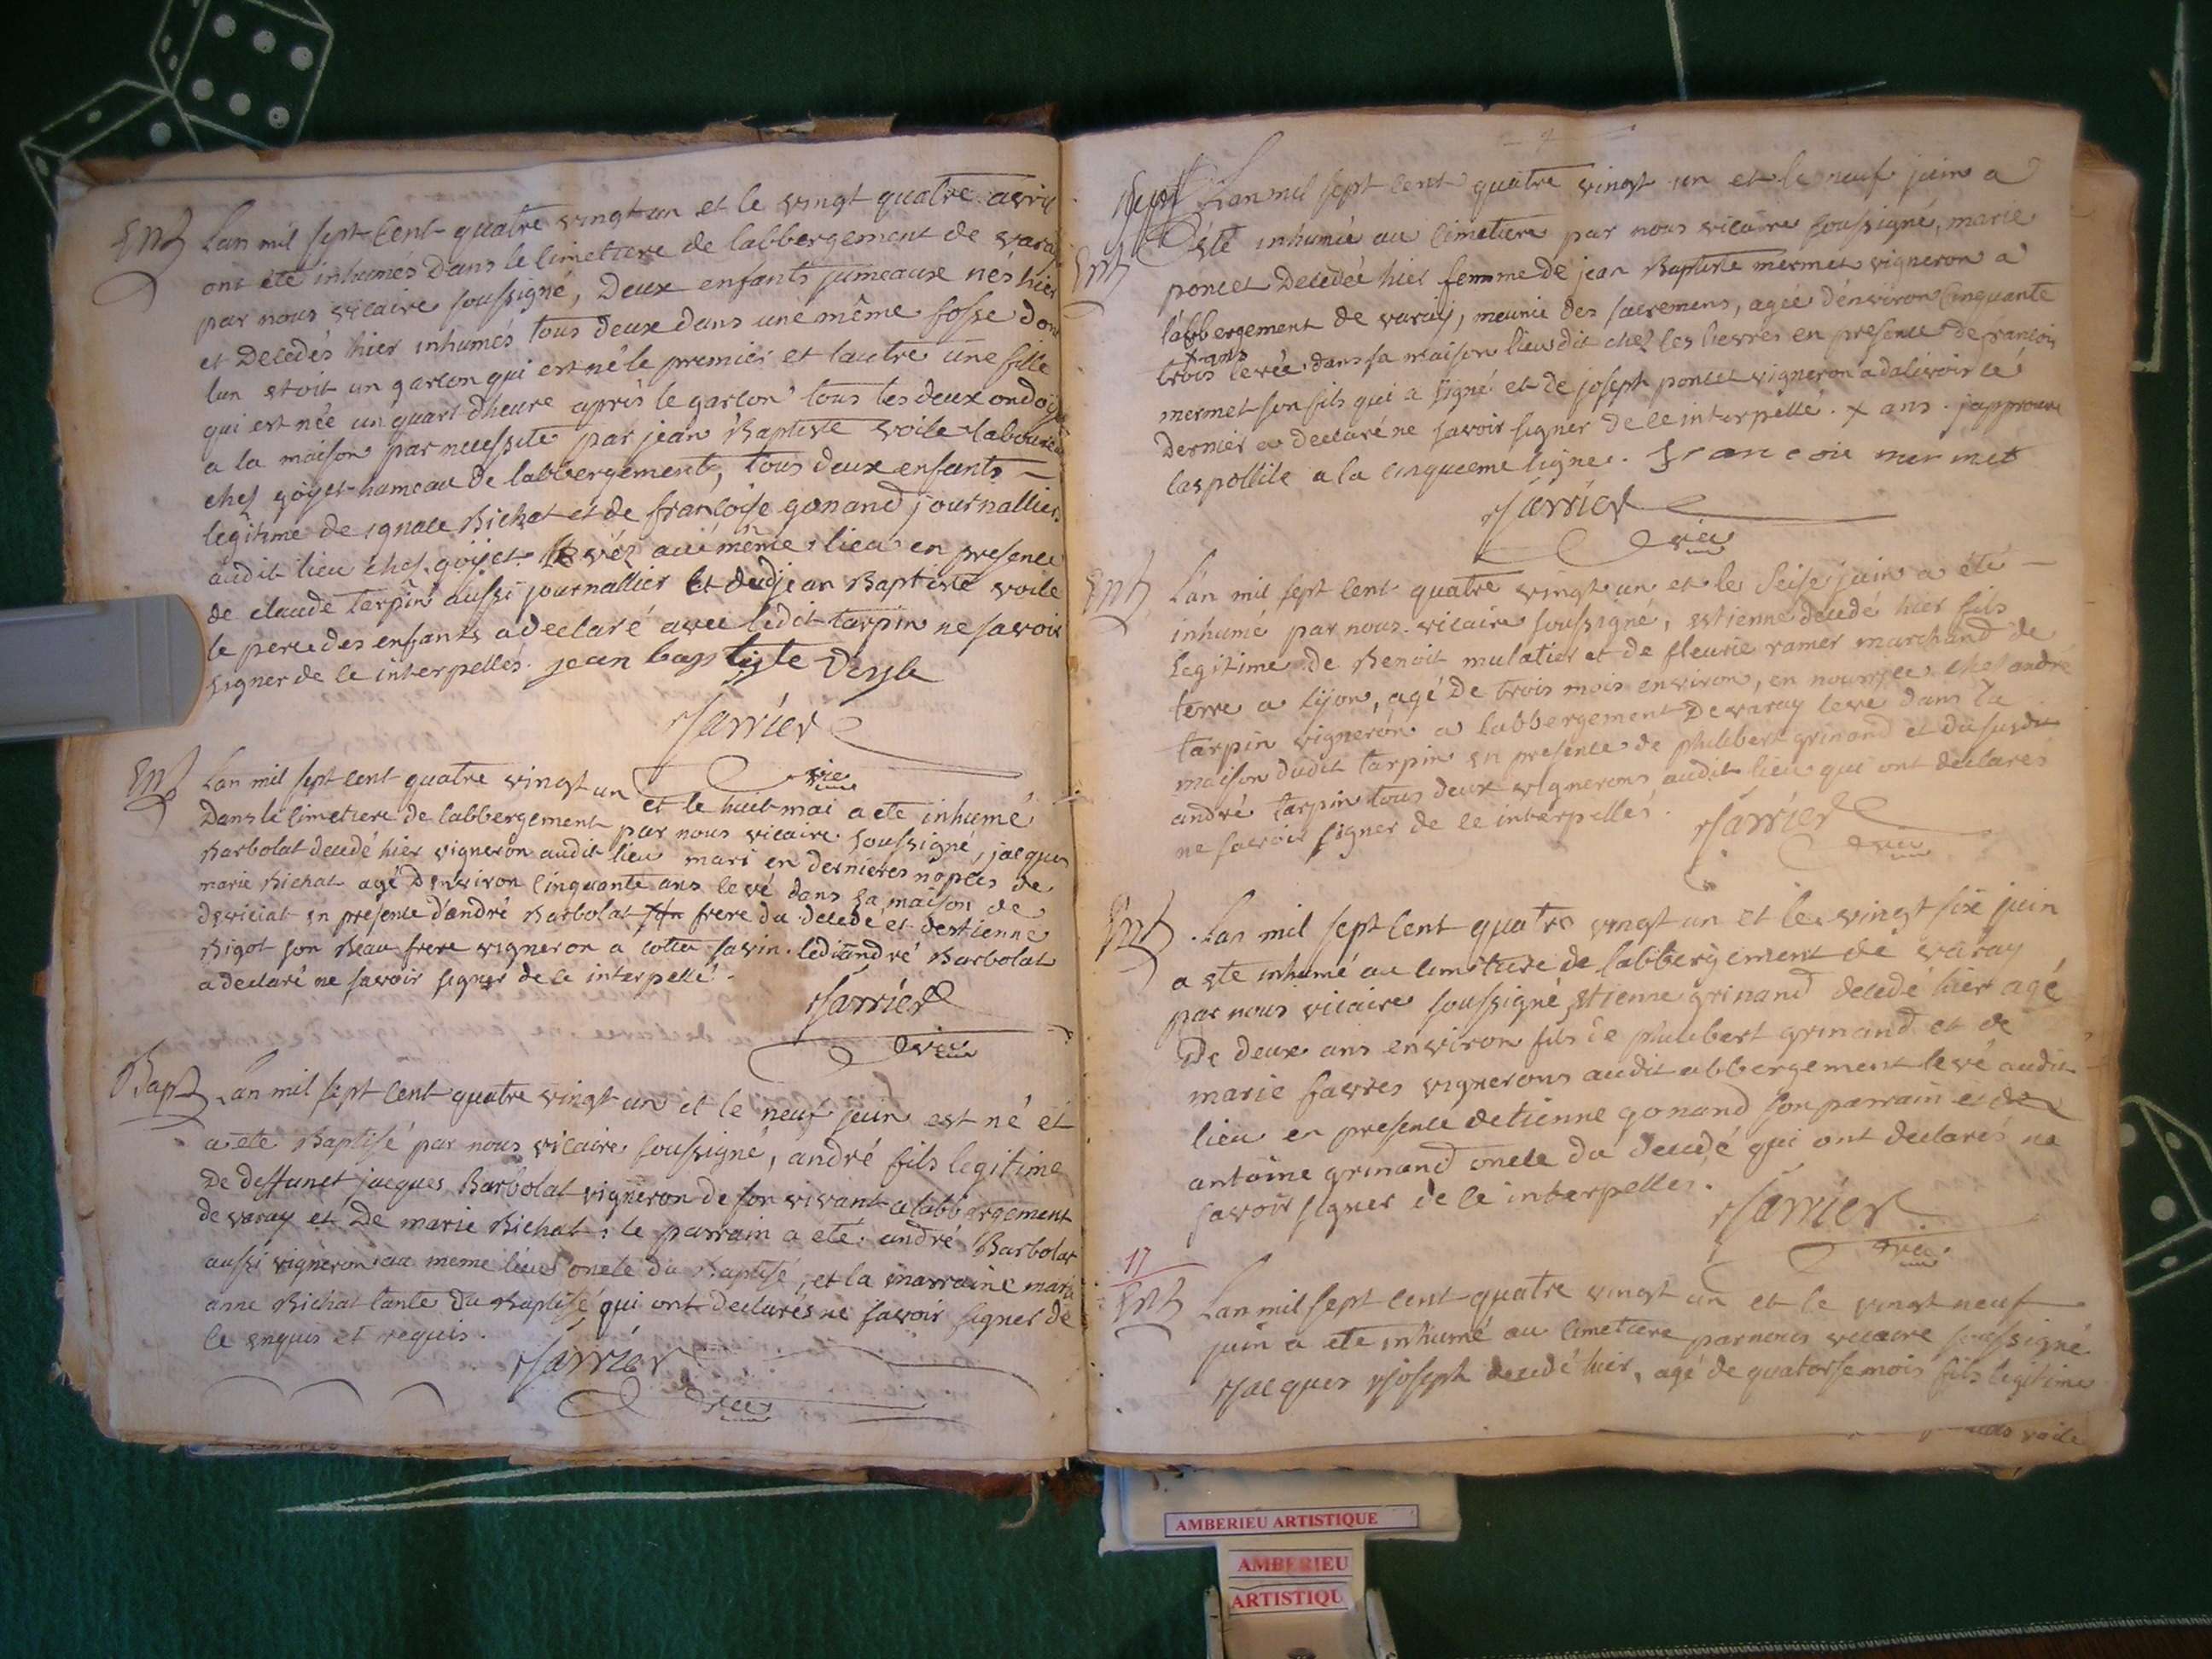 Ent
Lan mil sept cent quatre vingt un et le vingt quatre avril
ont été inhumés dans le cimetiere de labbergement de varay
par nous vicaire soussigné, deux enfants jumeaux nés hier
et decedés hier inhumés tous deux dans une même fosse dont
lun etoit un garcon qui est né le premier et lautre une fille
qui est née un quart dheure après le garcon tous les deux ondoyé
a la maison par necessité par jean Baptiste voile laboureur
chez goyet hameau de labbergement, tous deux enfants
legitime de ignace Bichat et de françoise gonand journallier
audit lieu chez goyet levéz aui même lieu en presence
de claude tarpin aussi journallier et dud jean Baptiste voile
le pere des enfants a declaré avec ledit tarpin ne savoir
signer de ce interpellés. jean baptiste
Jarrier
vic
Ent
Lan mil sept cent quatre vingt un et le huit mai a ete inhumé
Dans le cimetiere de labbergement par nous vicaire soussigné, jacques
Barbolat decedé hier vigneron audit lieu mari en dernieres nopces de
marie Bichat agé denviron cinquante ans levé dans sa maison de
deviciat en presence d'andré Barbolat frere du decedé et destienne
Bigot son Beau frere vigneron a cotte savin. ledit andré Barbolat
a declaré ne savoir signer de ce interpellé.
Jarrier
vic
Bapt
Lan mil sept cent quatre vingt un et le neuf juin est né et
a ete Baptisé par nous vicaire soussigné, andré fils legitime
De deffunct jacques Barbolat vigneron de son vivant a labbergement
de varay et De marie Bichat; le parrain a eté andré Barbolat
aussi vigneron au meme lieu oncle du Baptisé, et la marraine marie
anne Bichat tante du Baptisé qui ont declarés ne savoir signer de
ce enquis et requis.
Jarrier
vic
Lan mil sept cent quatre vingt un et le neuf juin a
Ent
été inhumée au cimetiere par nous vicaire soussigné, marie
poncet Decedée hier femme de jean Baptiste mermet vigneron a
labbergement de varay, meunie des sacremens, agée d'environ cinquante
x ans
trois levée dans sa maison lieu dit chez les lievres en presence de francois
mermet son fils qui a signé et de joseph poncet vigneron a dalivoir ce
Dernier a declaré ne savoir signer de ce interpellé. x ans. japprouve
lapostile a la cinquieme ligne. francoie mermet
Jarrier
vic
Ent
Lan mil sept cent quatre vingt un et le seise juin a été
inhumé par nous vicaire soussigné, estienne decedé hier fils
Legitime de Benoit mulatier et de fleurie ramer marchand de
terre a lijon, agé De trois mois environ, en nourrice chez andré
tarpin vigneron a labbergement De varay levé dans la
maison dudit tarpin en presence de philibert grinand et du susdit
andré tarpin tous deux vignerons audit lieu qui ont declarés
ne savoir signer de ce interpellés.
Jarrier
vic
Ent
Lan mil sept cent quatre vingt un et le vingt six juin
a ete inhumé au cimetiere de labbergement de varay
par nous vicaire soussigné, etienne grinand decedé hier agé
De deux ans environ fils de philibert grinand et de
marie favres vignerons audit abbergement levé audit
lieu en presence detienne gonand son parrain et de
antoine grinand oncle du decedé qui ont declarés ne
savoir signer de ce interpellés.
Jarrier
vic
17
Ent
Lan mil sept cent quatre vingt un et le vingt neuf
juin a ete inhumé au cimetiere par nous vicaire soussigné
Jacques Joseph decedé hier, agé de quatorse mois fils legitime
voile
AMBERIEU ARTISTIQUE
AMBERIEU
ARTISTIQU